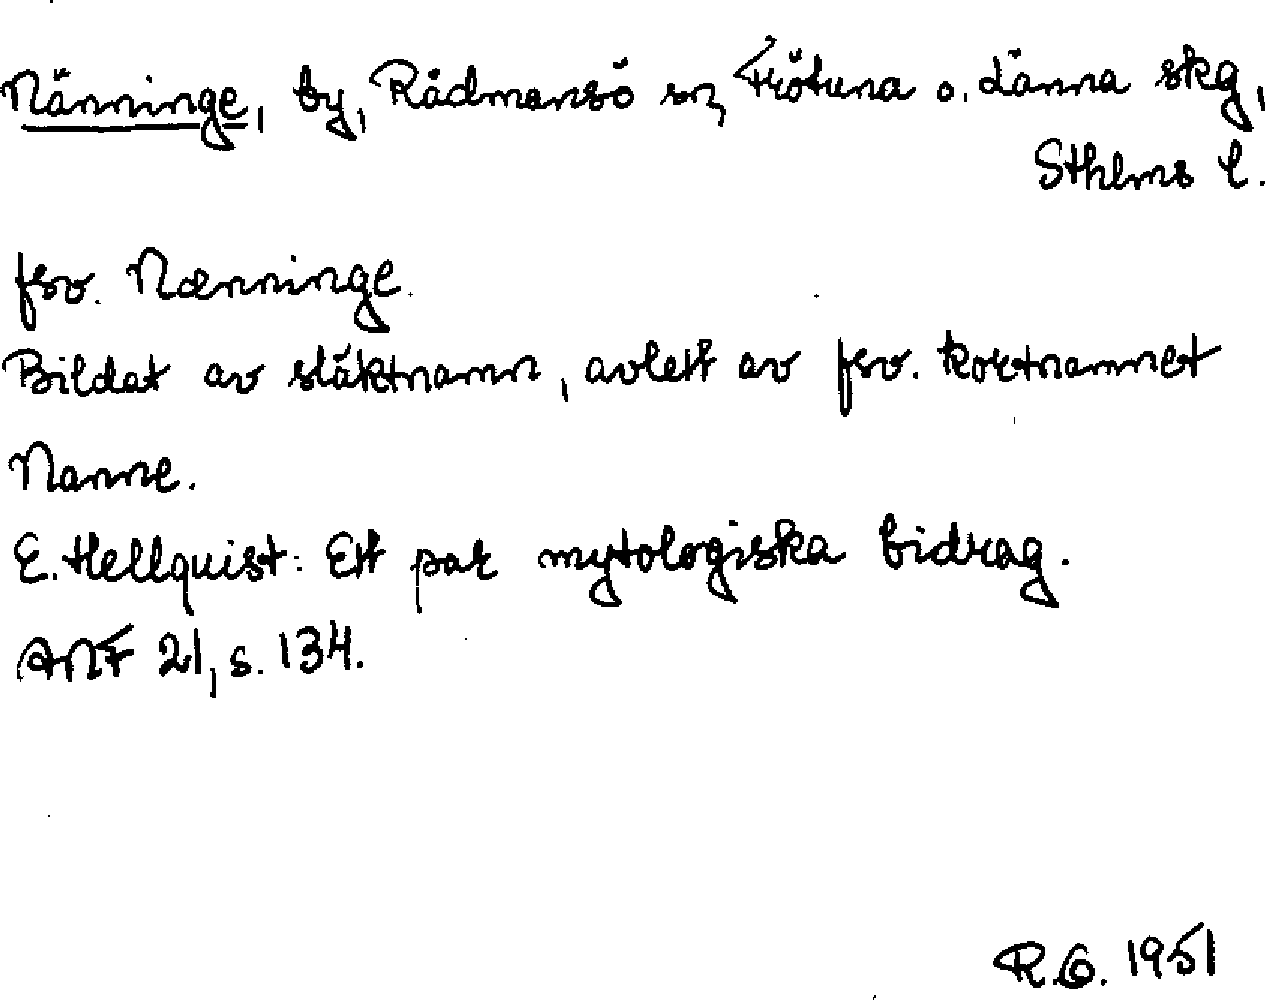 Nänninge, by, Rådmansö sn, Frötuna o. Länna skg,
Sthlms l.
fsv. Nænninge.
Bildat av släktnamn, avlett av fsv. kortnamnet
Nanne.
E. Hellquist: Ett par mytologiska bidrag.
ANF 21, s. 134.
R.G. 1951